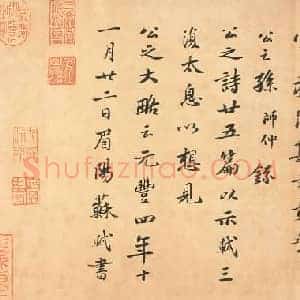 公之孫師仲錄
公之詩廿五篇以示軾三
復太息以想見
公之大略云元豐四年十
一月廿二日眉陽蘇軾書